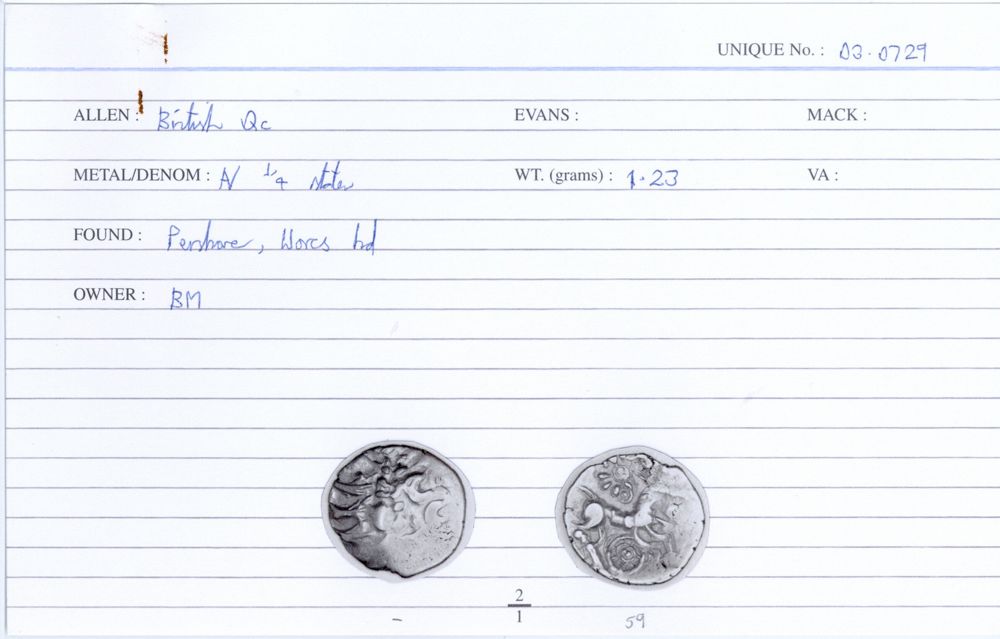 UNIQUE No. : 03.0729
ALLEN : British Qc EVANS : MACK :
METAL/DENOM : AV 1/4 stater WT. (grams) : 1.23 VA :
FOUND : Pershore, Worcs hd
OWNER : BM
2
– 1 59